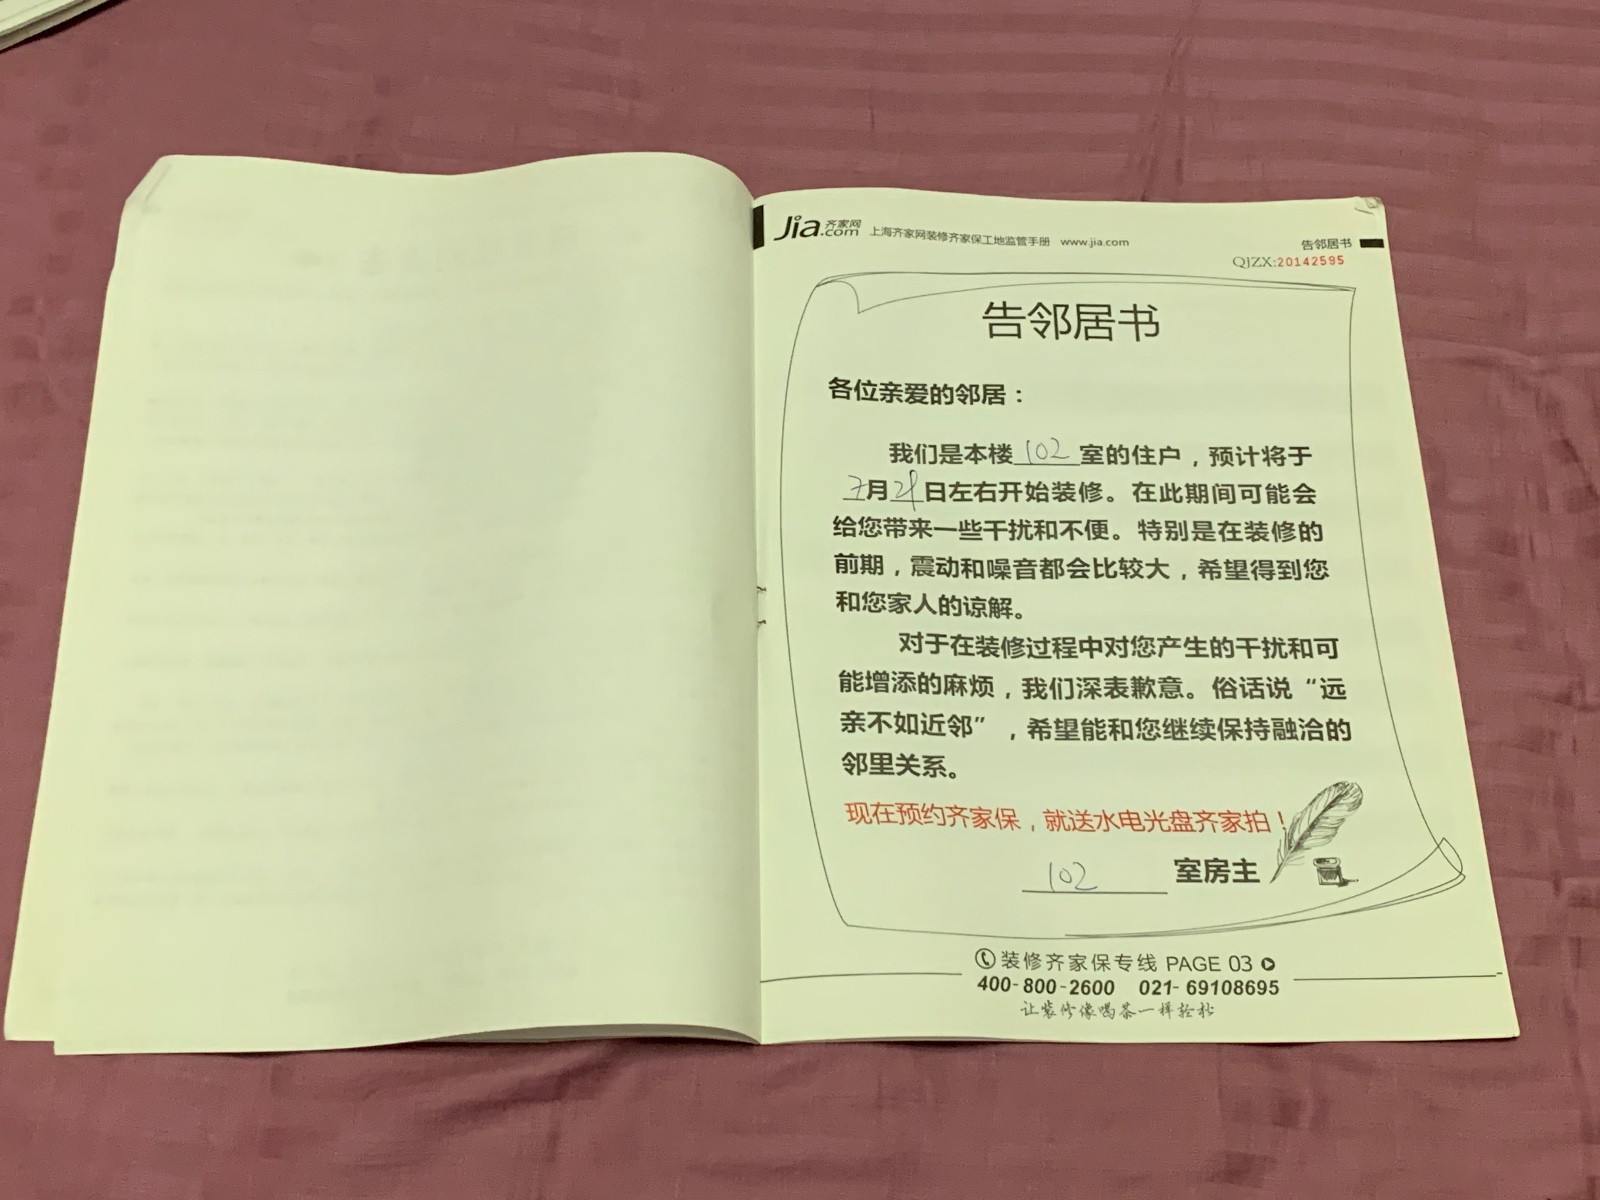 Jia.com 齐家网 上海齐家网装修齐家保工地监管手册 www.jia.com
告邻居书
QJZX:20142595
告邻居书
各位亲爱的邻居：
我们是本楼 102 室的住户，预计将于
7月 日左右开始装修。在此期间可能会
给您带来一些干扰和不便。特别是在装修的
前期，震动和噪音都会比较大，希望得到您
和您家人的谅解。
对于在装修过程中对您产生的干扰和可
能增添的麻烦，我们深表歉意。俗话说“远
亲不如近邻”，希望能和您继续保持融洽的
邻里关系。
现在预约齐家保，就送水电光盘齐家拍！
102 室房主
装修齐家保专线 PAGE 03
400-800-2600 021-69108695
让装修像喝茶一样轻松